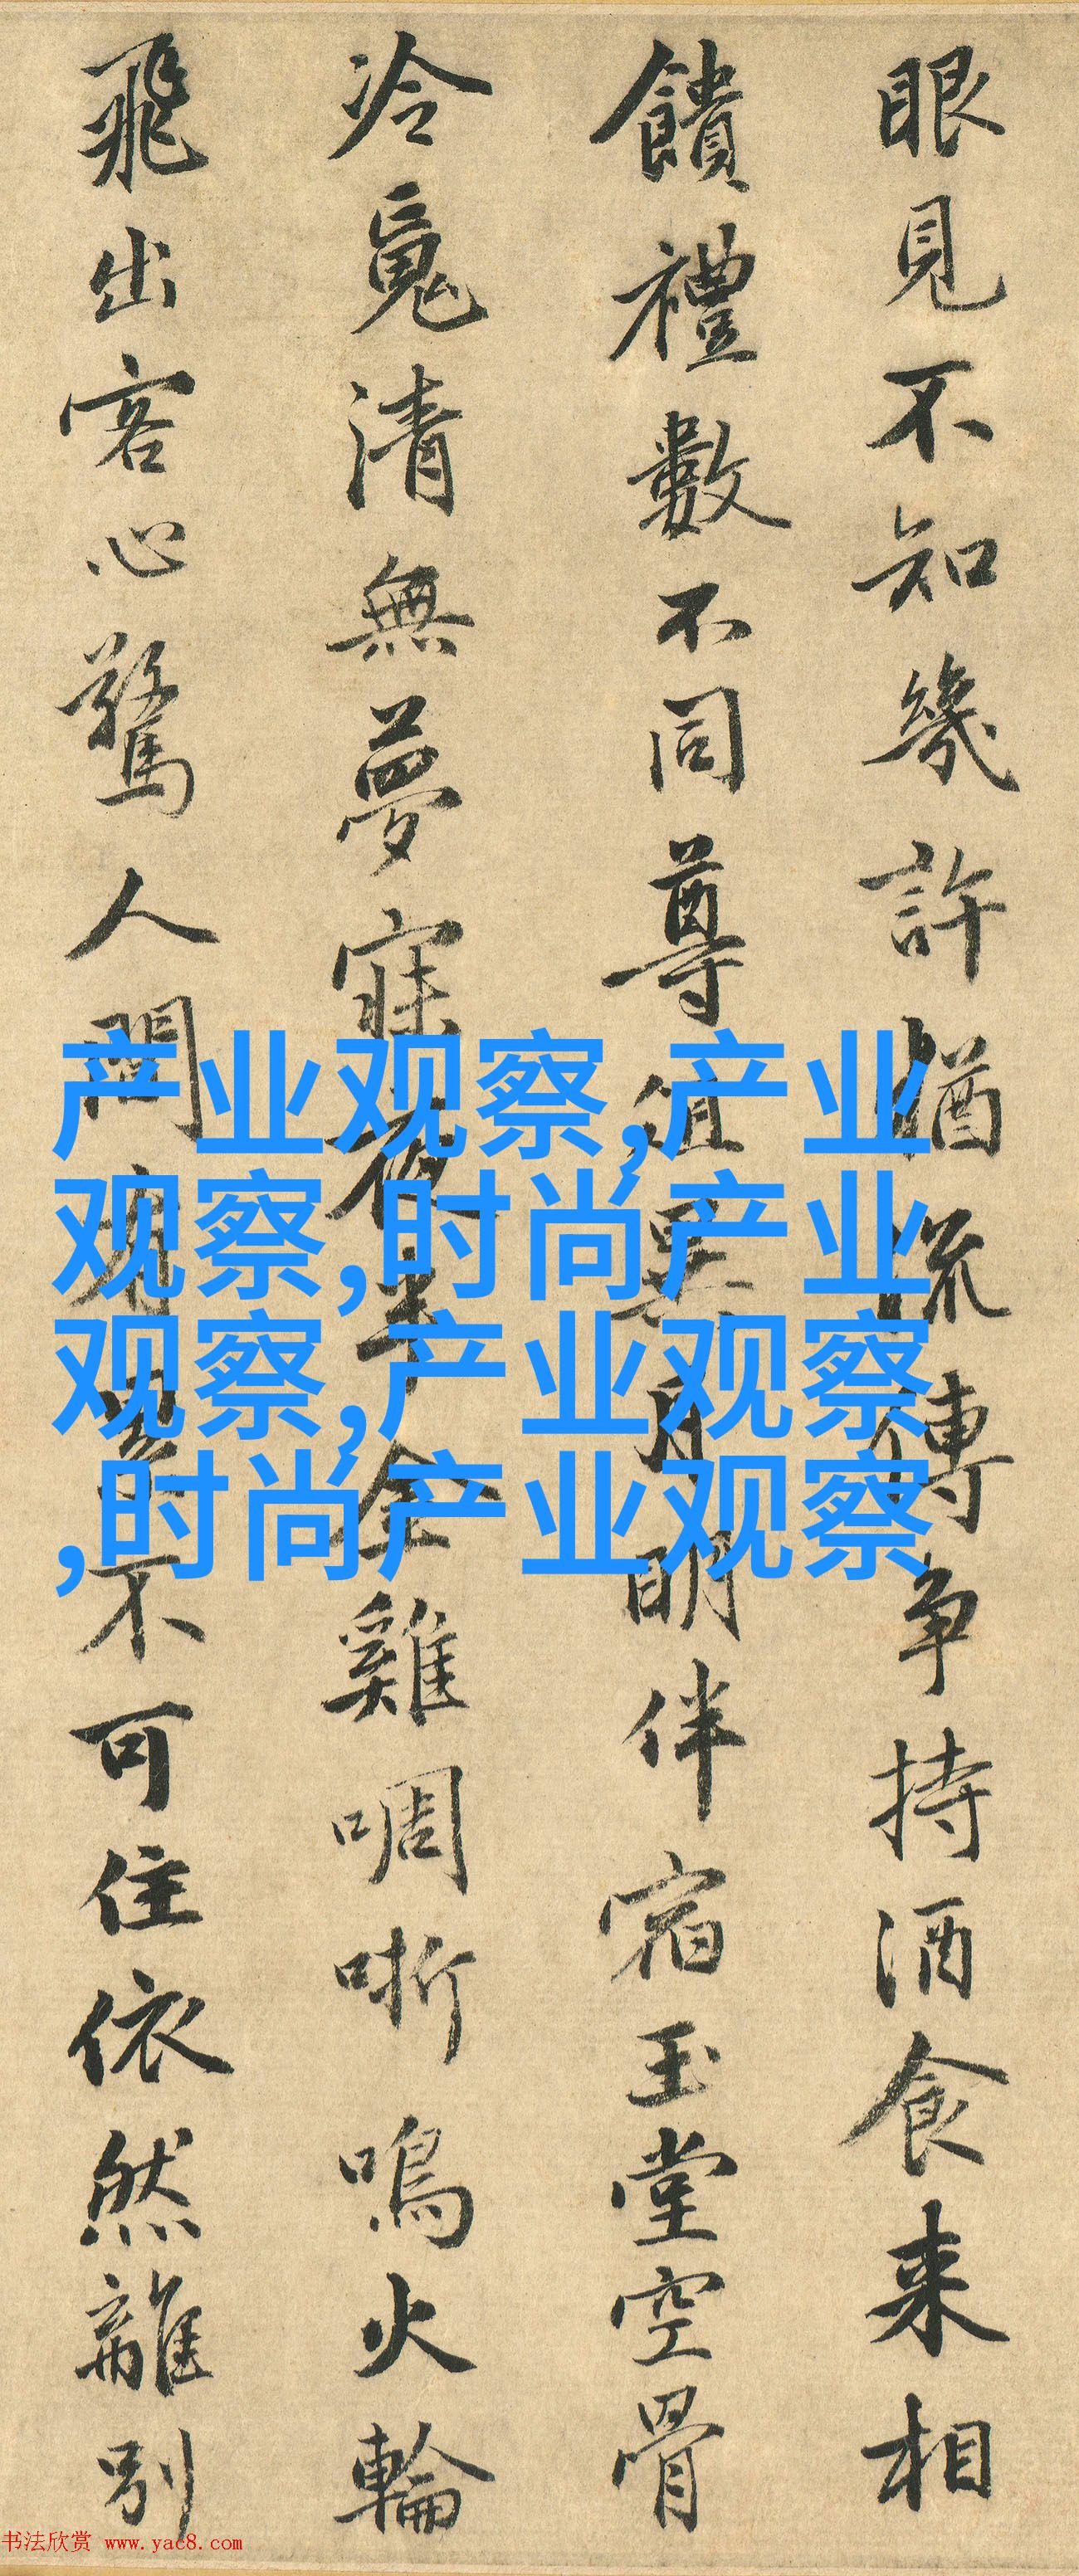 眼見不知幾許猶流傳爭持酒食来相
饋禮數不同尊俎異月明伴宿玉堂空骨
冷魂清無夢寐夜半金雞啁哳鳴火輪
飛出客心驚人間有累不可住依然離別
产业观察,产业
观察,时尚产业
观察,产业观察
,时尚产业观察
书法欣赏 www.yac8.com